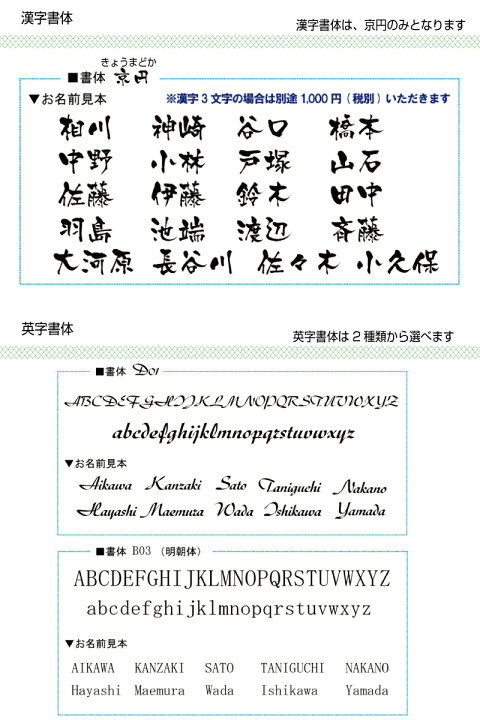 漢字書体
漢字書体は、京円のみとなります
きょうまどか
■書体 京円
▼お名前見本 ※漢字3文字の場合は別途1,000円(税別)いただきます
相川 神崎 谷口 橋本
中野 小林 戸塚 山石
佐藤 伊藤 鈴木 田中
羽島 池端 渡辺 斉藤
大河原 長谷川 佐々木 小久保
英字書体
英字書体は2種類から選べます
■書体 D01
ABCDEFGHIJKLMNOPQRSTUVWXYZ
abcdefghijklmnopqrstuvwxyz
▼お名前見本
Aikawa Kanzaki Sato Taniguchi Nakano
Hayashi Maemura Wada Ishikawa Yamada
■書体 B03 (明朝体)
ABCDEFGHIJKLMNOPQRSTUVWXYZ
abcdefghijklmnopqrstuvwxyz
▼お名前見本
AIKAWA KANZAKI SATO TANIGUCHI NAKANO
Hayashi Maemura Wada Ishikawa Yamada